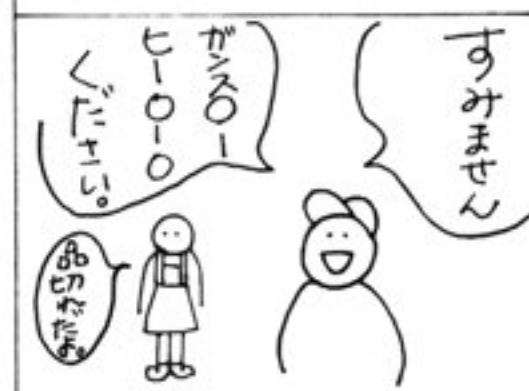 すみません
ガンス〇ー
ヒー〇ー〇
ください。
品切れだよ。